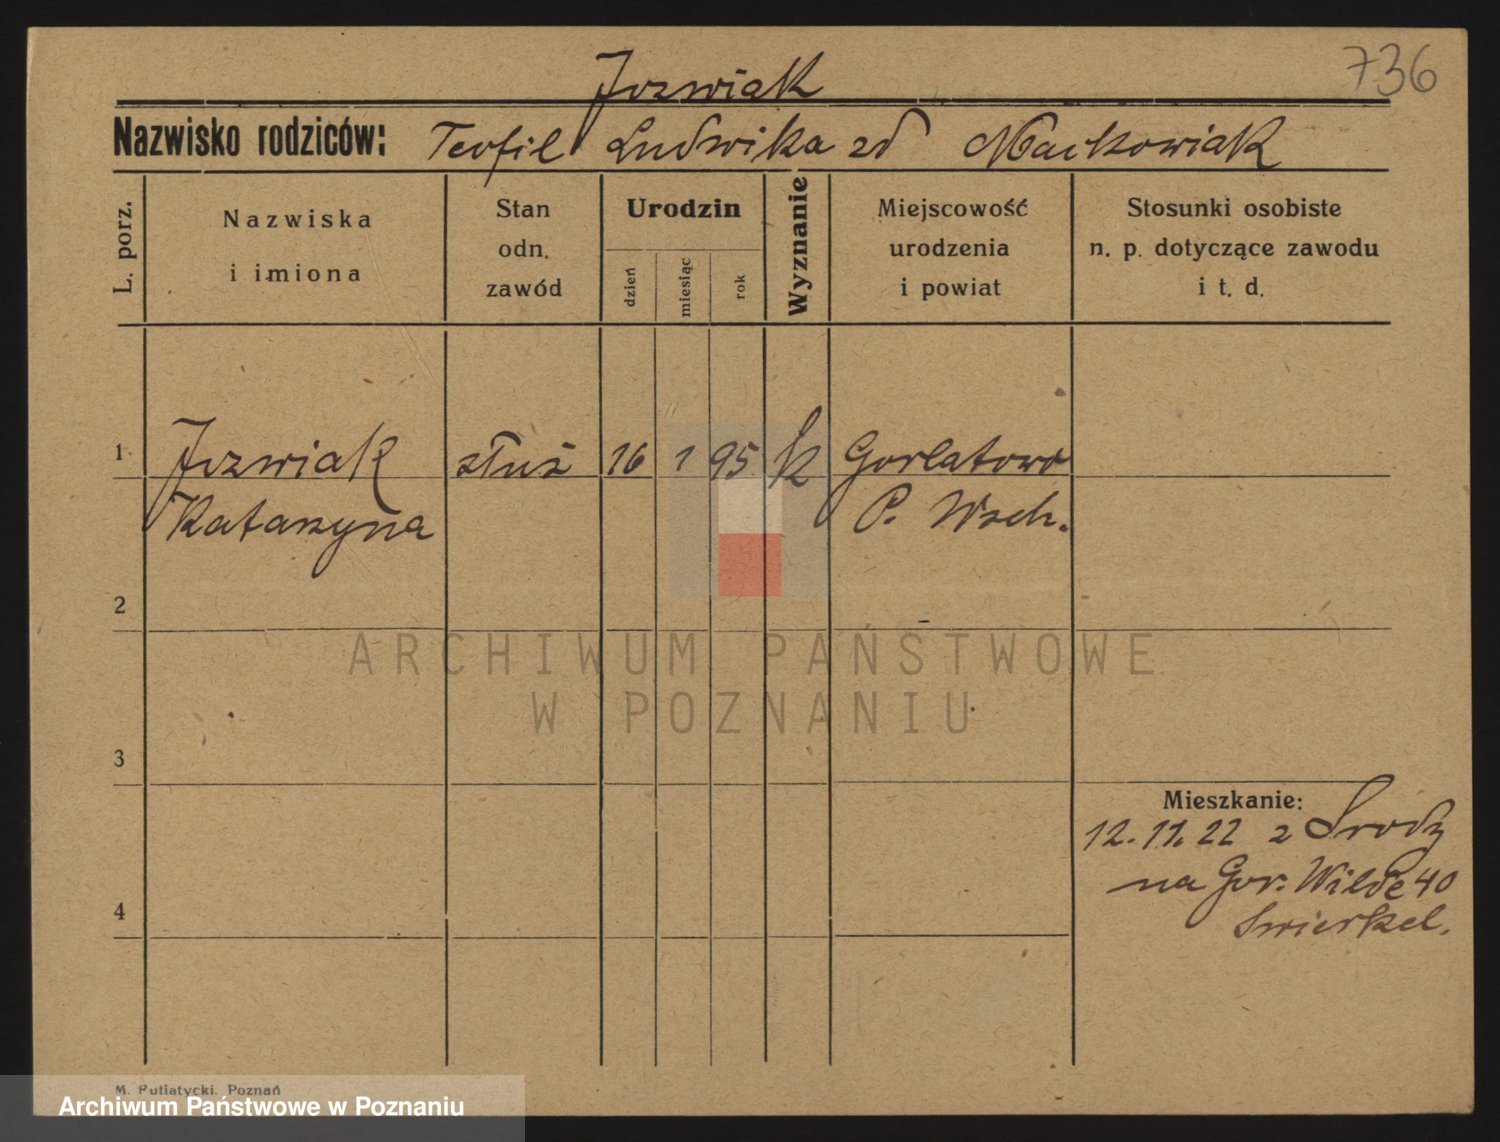 736
Jozwiak
Nazwisko rodziców: Teofil Ludwika zd Maćkowiak
L. porz.
Nazwiska
i imiona
Stan
odn.
zawód
Urodzin
dzień
miesiąc
rok
Wyznanie
Miejscowość
urodzenia
i powiat
Stosunki osobiste
n. p. dotyczące zawodu
i t. d.
1 Jozwiak służ 16 1 95 k Gorlatowo
Katarzyna P. Wsch.
2
ARCHIWUM PAŃSTWOWE
W POZNANIU
3
Mieszkanie:
12.11.22 z Srody
na Gor. Wilde 40
4
M. Putiatycki. Poznań
Archiwum Państwowe w Poznaniu